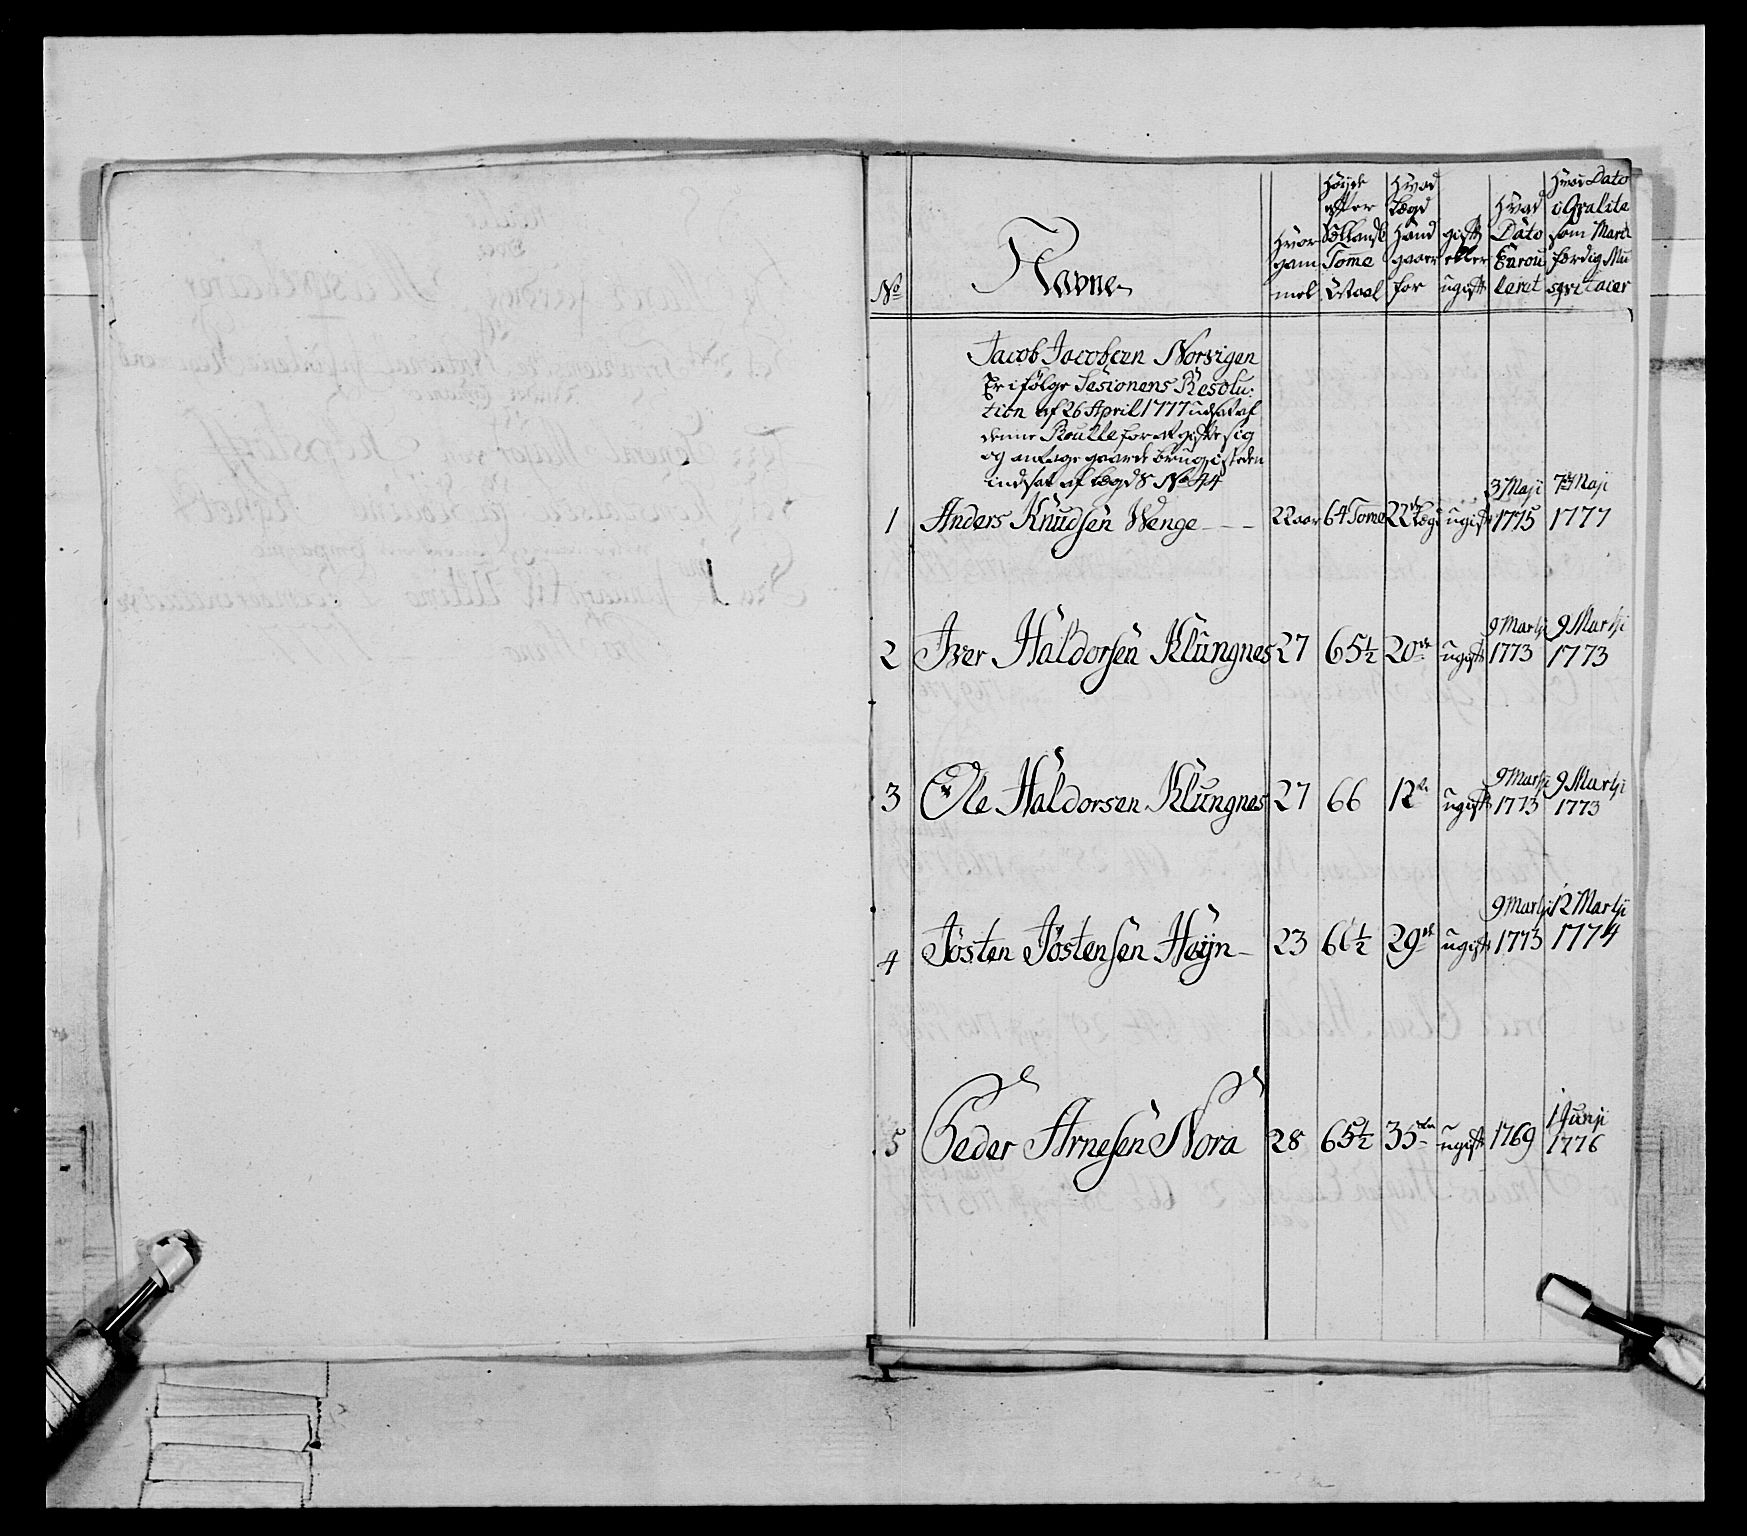 No
Navne
Hvor
gam
mel
Høyde
efter
Sællandsk
Tome
Maal
Hvad
Lægd
Hand
gaaer
for
gift
eller
ugift
Hvad
Dato
Enrou
leret
Hvad Dato
i Qvalite
som March
færdig Mu
sqvitaier
Jacob Jacobsen Norvigen
Er ifølge Sesionens Resolu:
tion af 26 April 1777 udsat af
denne Roulle for at gifte sig
og antage gaarde brug, isteden
indsat af Lægd 8 No 44
1 Anders Knudsen Wenge 22 aar 64 Tome 22 Lægd ugift 3 Maji 1775 7de Maji 1777
2 Iver Haldorsen Klungnes 27 65 1/2 20de ugift 9 Martji 1773 9 Martji 1773
3 Ole Haldorsen Klungnes 27 66 12te ugift 9 Martji 1773 9 Martji 1773
4 Jösten Jöstensen Høÿn 23 61 1/2 29de ugift 9 Martji 1773 12 Martji 1774
5 Peder Arnesen Nora 28 65 1/2 35te ugift 1769 1 Junji 1776